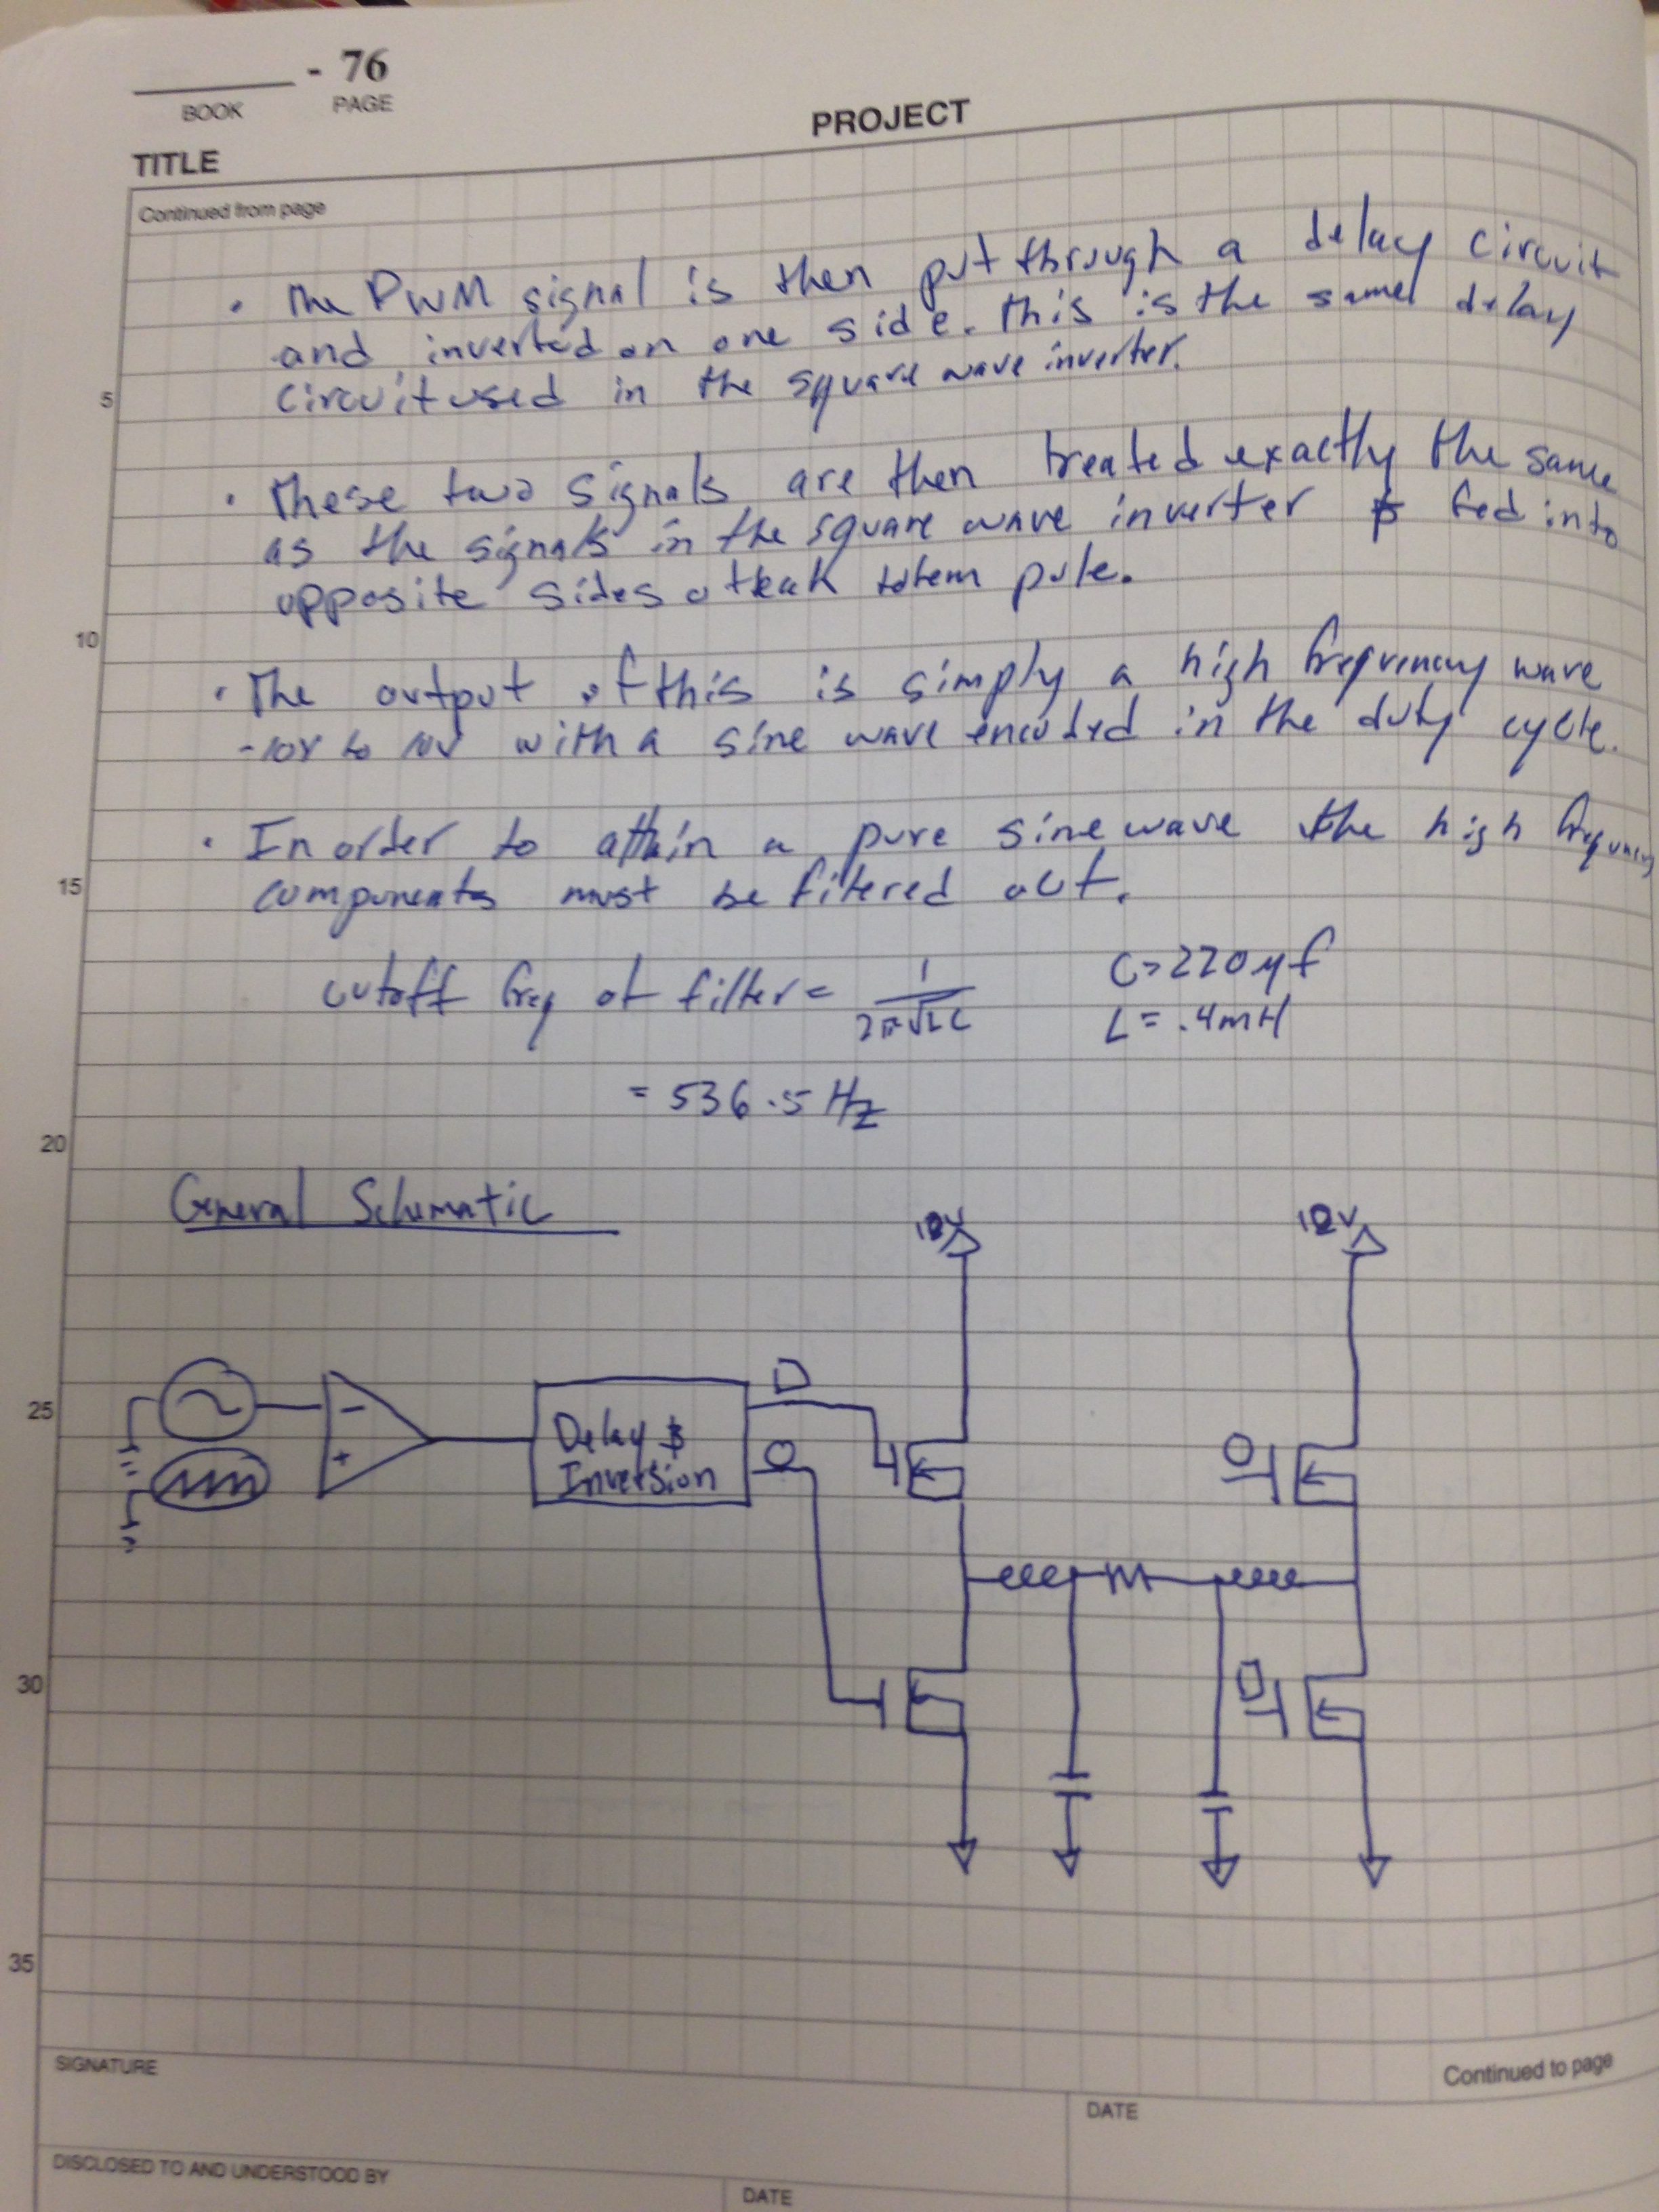 - 76
BOOK PAGE
PROJECT
TITLE
Continued from page
• The PWM signal is then put through a delay circuit
and inverted on one side. This is the same delay
5 circuit used in the square wave inverter.
• These two signals are then treated exactly the same
as the signals in the square wave inverter & fed into
opposite sides of totem pole.
10
• The output of this is simply a high frequency wave
-10V to 10V with a sine wave encoded in the duty cycle.
• In order to attain a pure sine wave the high frequency
15 components must be filtered out.
cutoff freq of filter = 1 / 2π√LC C = 220 μf
L = .4mH
= 536.5 Hz
20
General Schematic
10V 10V
25
− + Delay & Inversion
30
35
SIGNATURE
Continued to page
DATE
DISCLOSED TO AND UNDERSTOOD BY
DATE